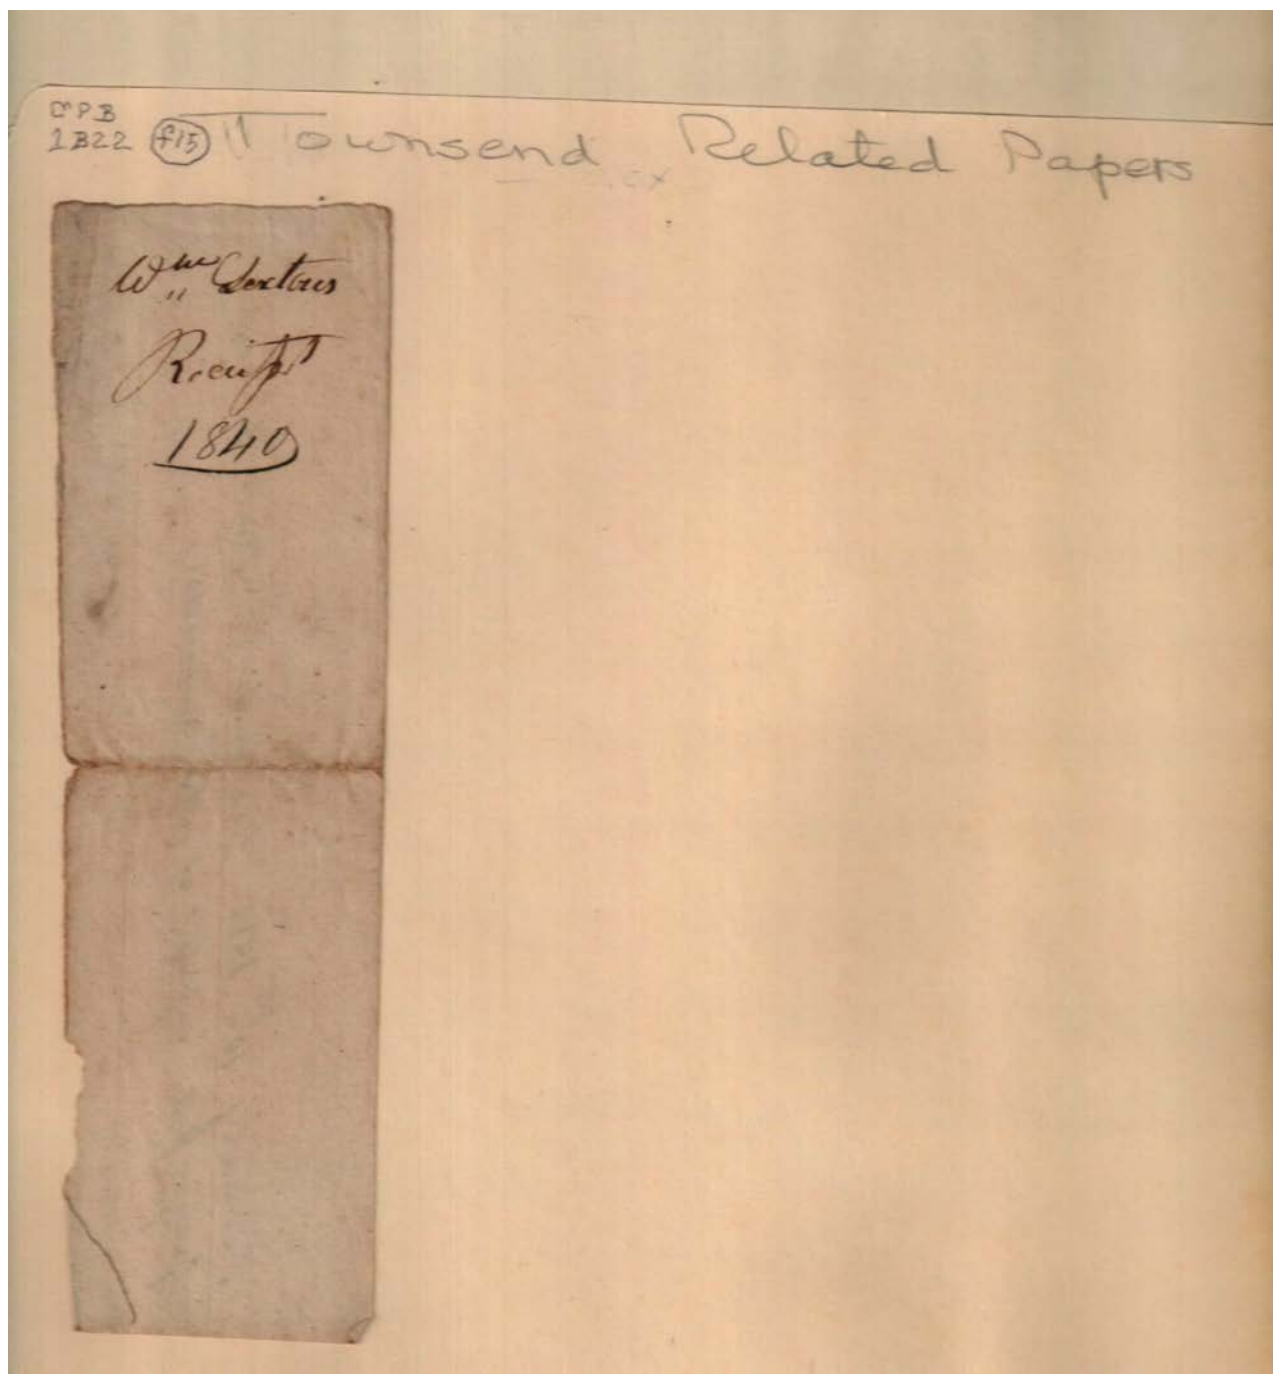 CPB
1B22 f15 Townsend Related Papers
Wm Sextons
Receipt
1840